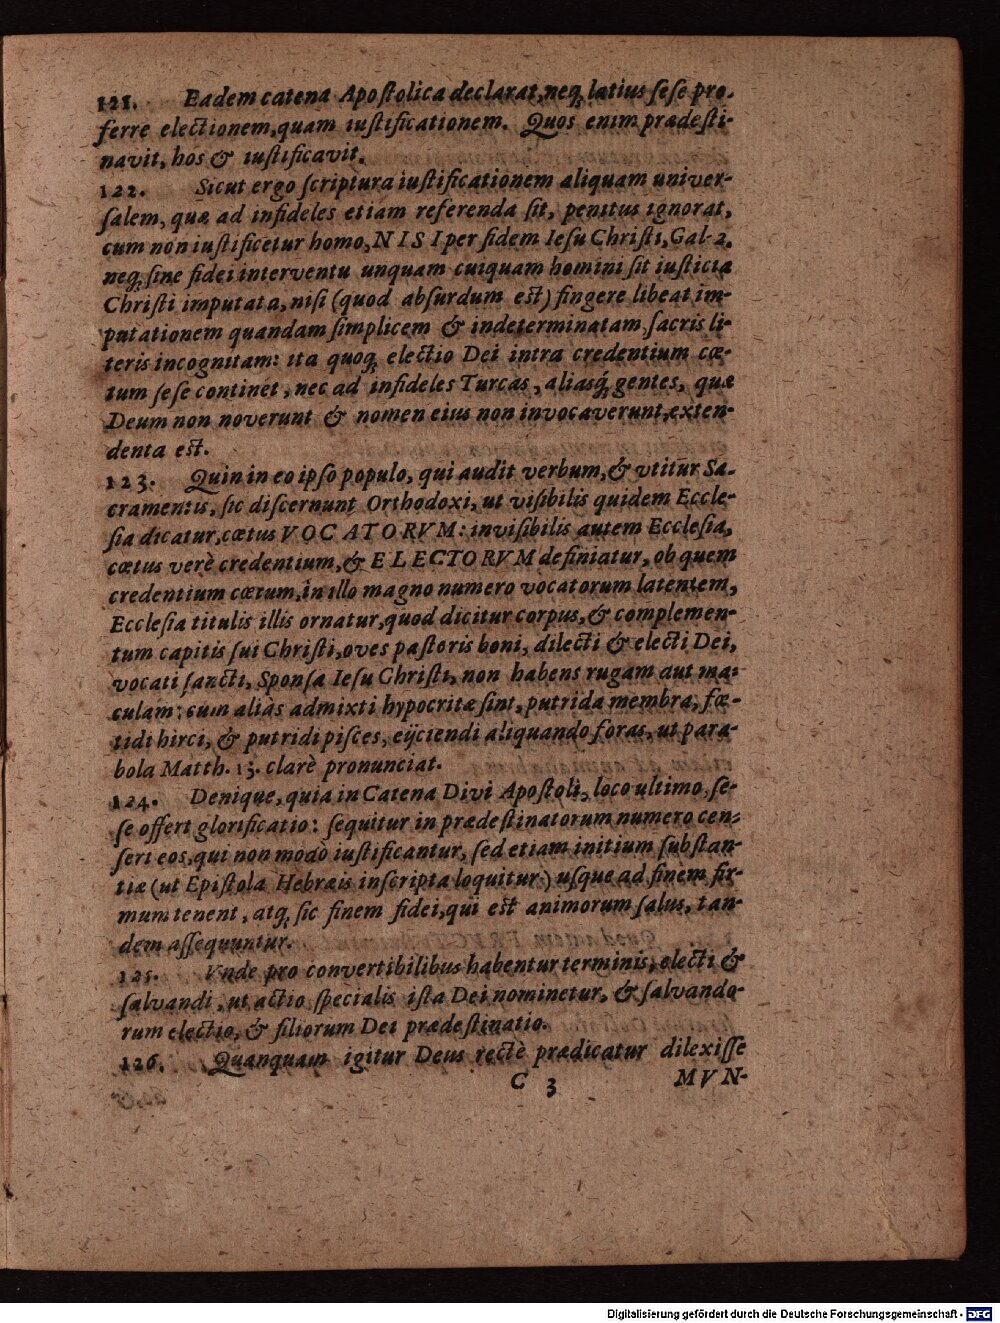 121. Eadem catena Apostolica declarat, neq; latius sese pro-
ferre electionem, quam iustificationem. Quos enim prædesti-
navit, hos & iustificavit.
122. Sicut ergo scriptura iustificationem aliquam univer-
salem, quæ ad infideles etiam referenda sit, penitus ignorat,
cum non iustificetur homo, NISI per fidem Iesu Christi, Gal. 2.
neq; sine fidei interventu unquam cuiquam homini sit iusticia
Christi imputata, nisi (quod absurdum est) fingere libeat im-
putationem quandam simplicem & indeterminatam, sacris li-
teris incognitam: ita quoq; electio Dei intra credentium cœ-
tum sese continet, nec ad infideles Turcas, aliasq́; gentes, quæ
Deum non noverunt & nomen eius non invocaverunt, exten-
denta est.
123. Quin in eo ipso populo, qui audit verbum, & vtitur Sa-
cramentis, sic discernunt Orthodoxi, ut visibilis quidem Eccle-
sia dicatur, cœtus VOCATORVM: invisibilis autem Ecclesia,
cœtus verè credentium, & ELECTORVM definiatur, ob quem
credentium cœtum, in illo magno numero vocatorum latentem,
Ecclesia titulis illis ornatur, quod dicitur corpus, & complemen-
tum capitis sui Christi, oves pastoris boni, dilecti & electi Dei,
vocati sancti, Sponsa Iesu Christi, non habens rugam aut ma-
culam: cum aliàs admixti hypocritæ sint, putrida membra, fœ-
tidi hirci, & putridi pisces, eijciendi aliquando foras, ut para-
bola Matth. 13. clarè pronunciat.
124. Denique, quia in Catena Divi Apostoli, loco ultimo, se-
se offert glorificatio: sequitur in prædestinatorum numero cen-
seri eos, qui non modò iustificantur, sed etiam initium substan-
tiæ (ut Epistola Hebræis inscripta loquitur) usque ad finem fir-
mum tenent, atq; sic finem fidei, qui est animorum salus, tan-
dem assequuntur.
125. Vnde pro convertibilibus habentur terminis, electi &
salvandi, ut actio specialis ista Dei nominetur, & salvando-
rum electio, & filiorum Dei prædestinatio.
126. Quanquam igitur Deus rectè prædicatur dilexisse
C 3 MVN-
Digitalisierung gefördert durch die Deutsche Forschungsgemeinschaft - DFG